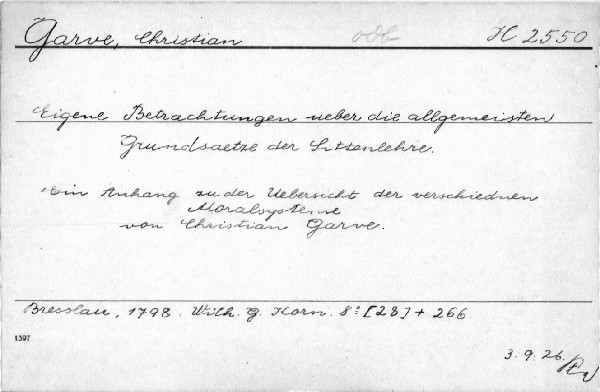 Garve, Christian odb H 2550
Eigene Betrachtungen ueber die allgemeisten
Grundsaetze der Sittenlehre.
Ein Anhang zu der Uebersicht der verschiednen
Moralsysteme
von Christian Garve.
Bresslau, 1798. Wilh. G. Korn. 8° [28] + 266
1397
3.9.26.